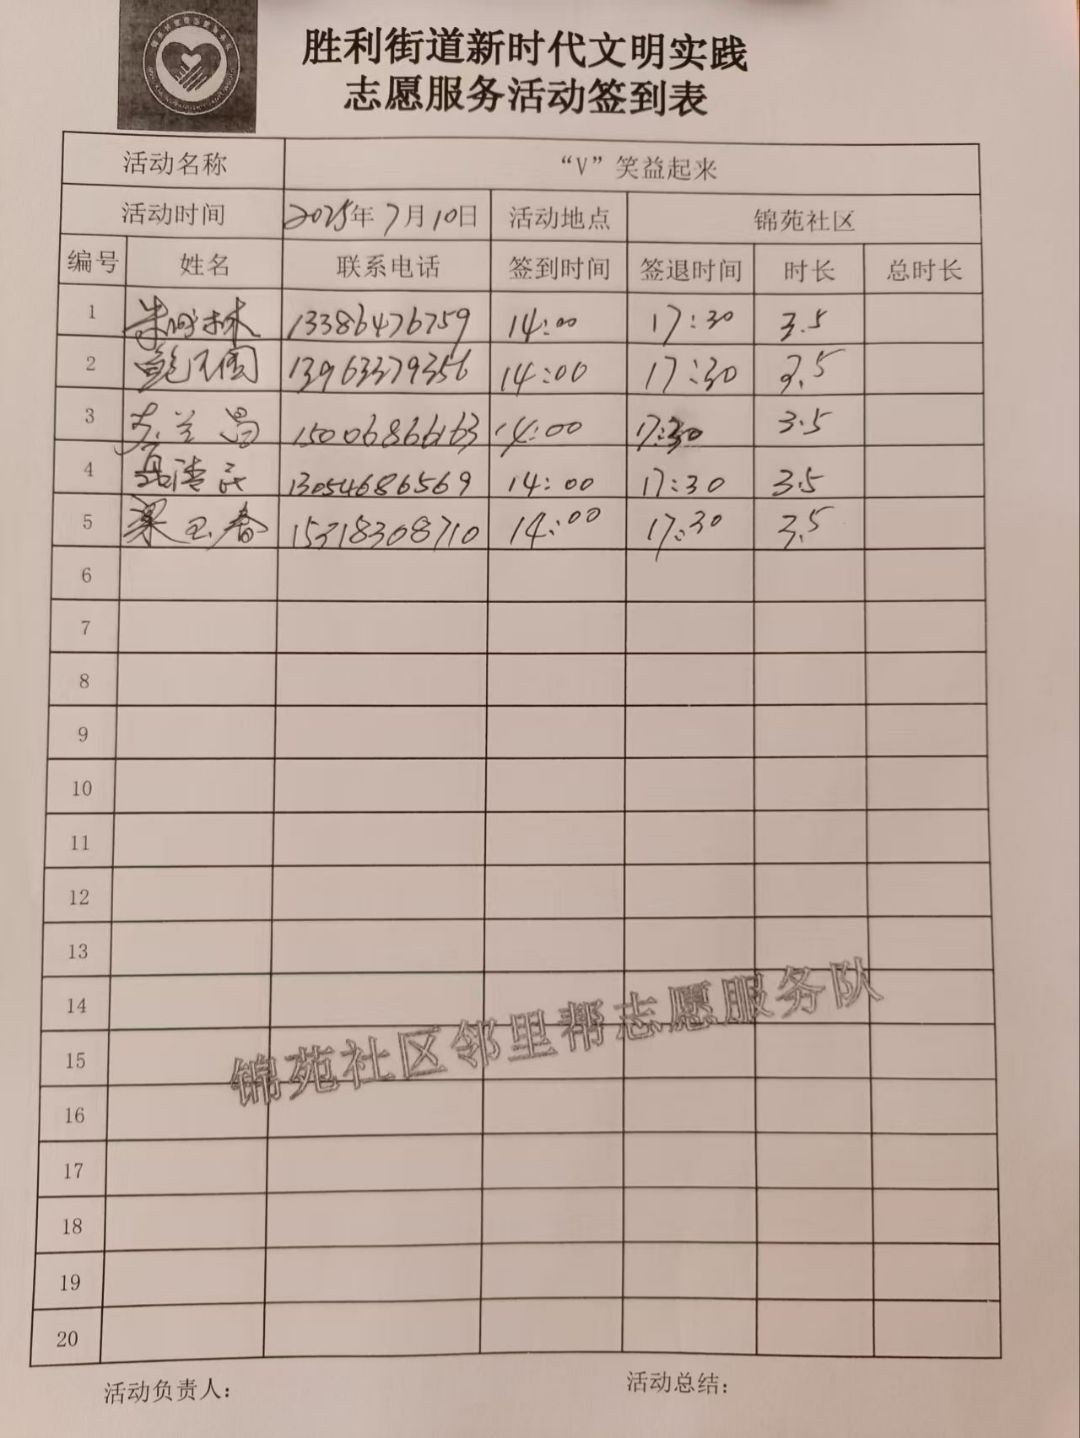 胜利街道新时代文明实践
志愿服务活动签到表
活动名称 “V”笑益起来
活动时间 2025年7月10日 活动地点 锦苑社区
编号 姓名 联系电话 签到时间 签退时间 时长 总时长
1 13386476759 14:00 17:30 3.5
2 13963379356 14:00 17:30 3.5
3 15006866163 14:00 17:30 3.5
4 13054686569 14:00 17:30 3.5
5 梁玉春 15318308710 14:00 17:30 3.5
6
7
8
9
10
11
12
13
14
15
16
17
18
19
20
锦苑社区邻里帮志愿服务队
活动负责人： 活动总结：